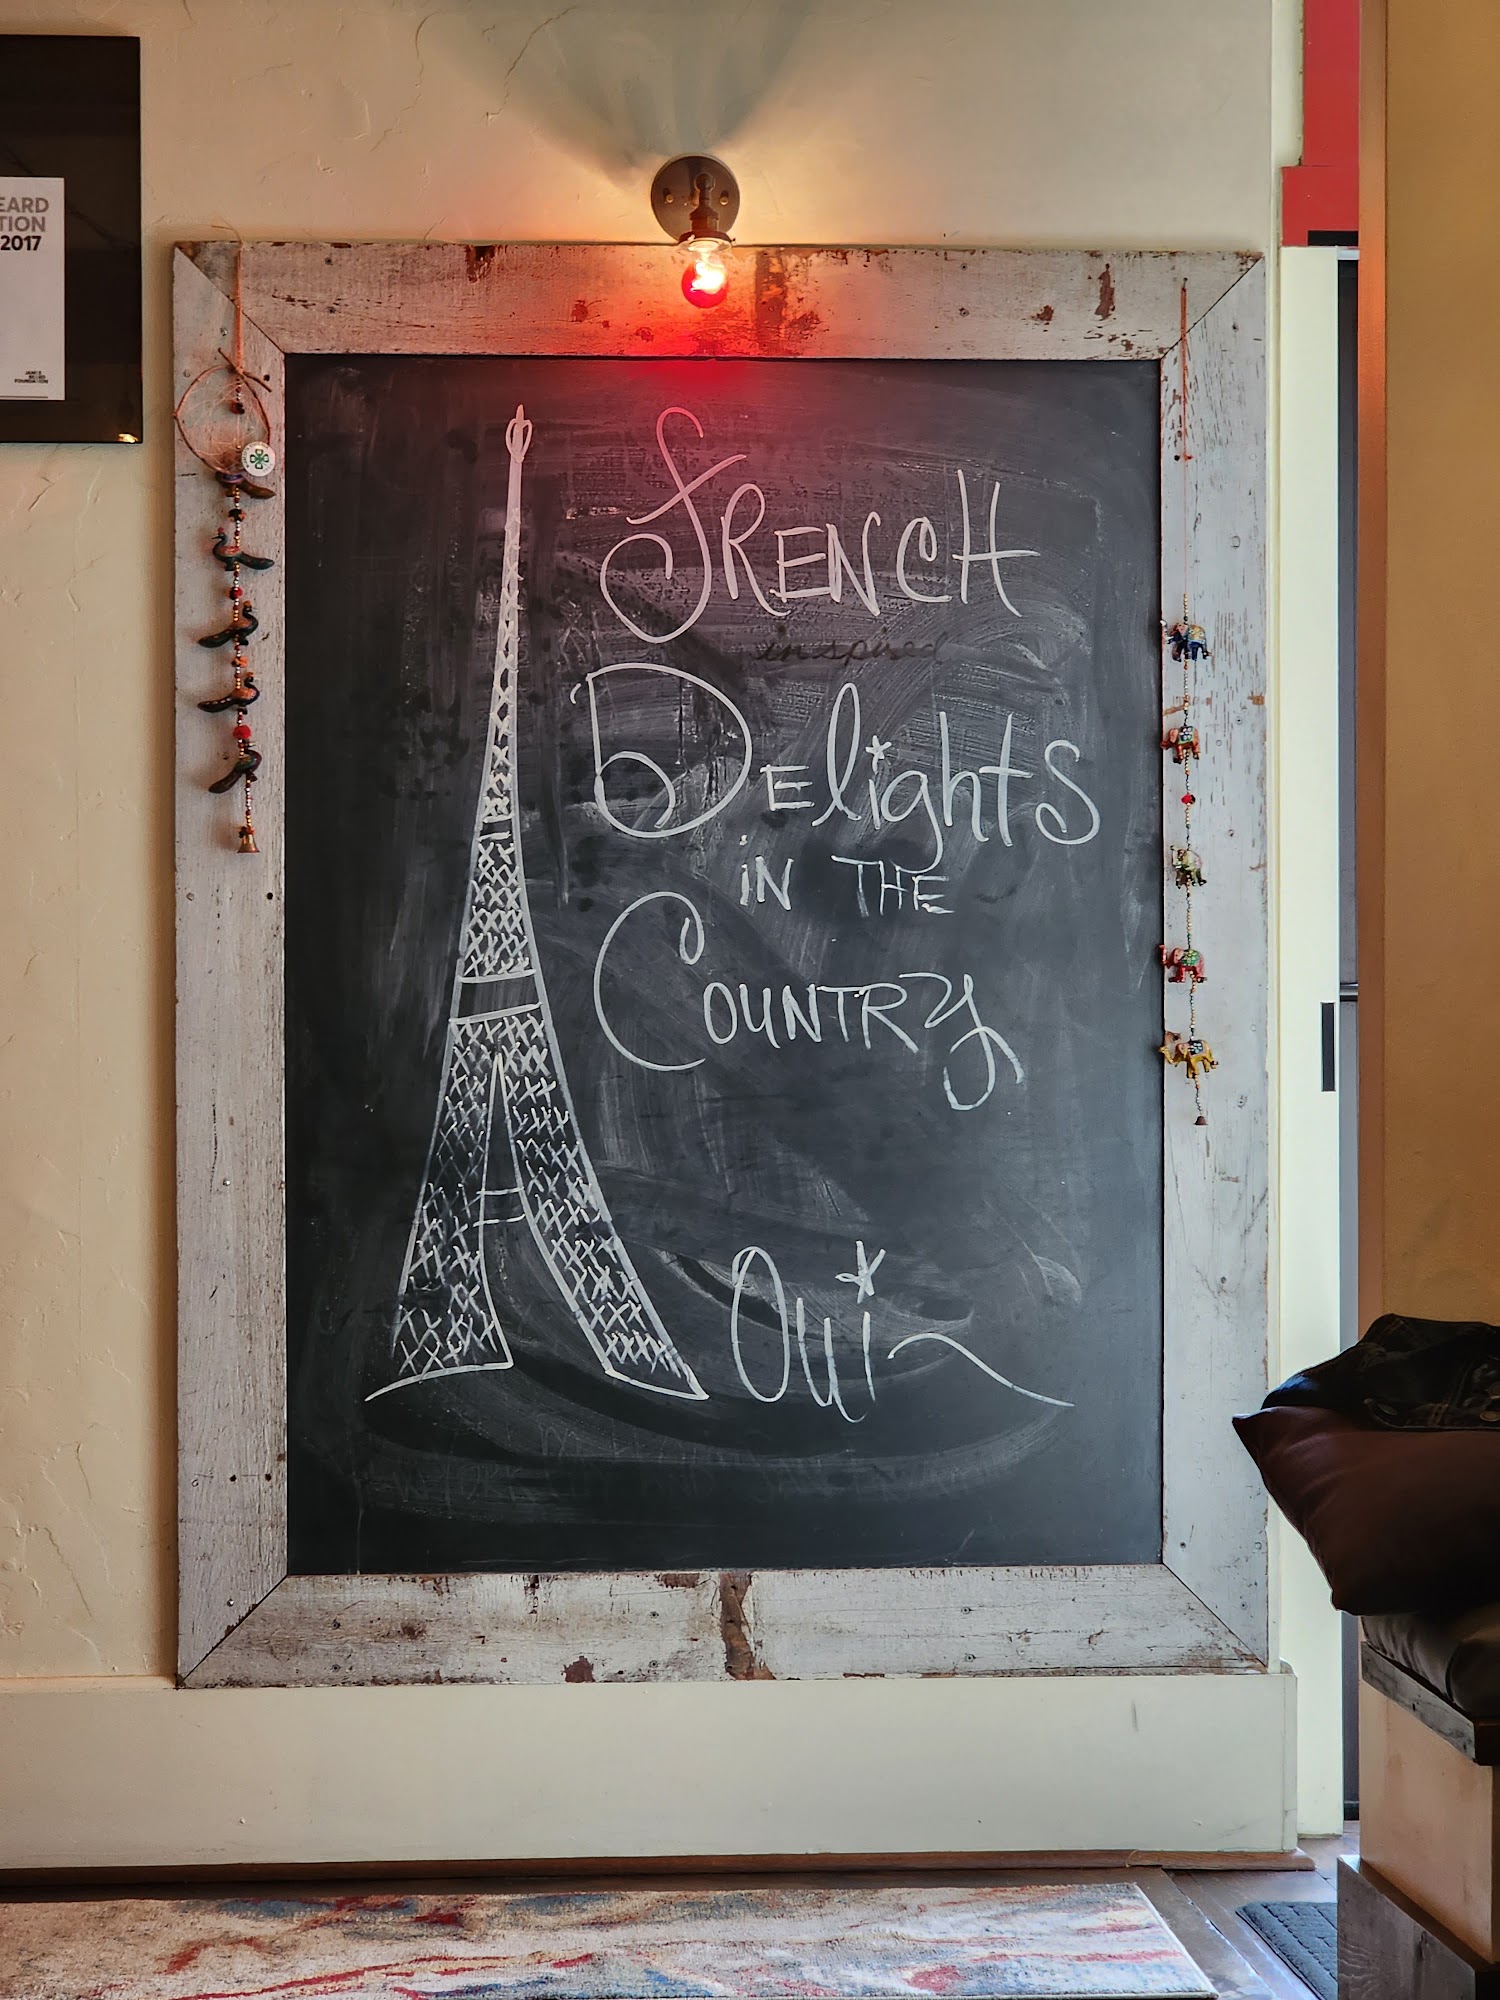 EARD
TION
2017
JAMES
BEARD
FOUNDATION
FRENCH
inspired
DElightS
iN THE
COUNTRY
Oui